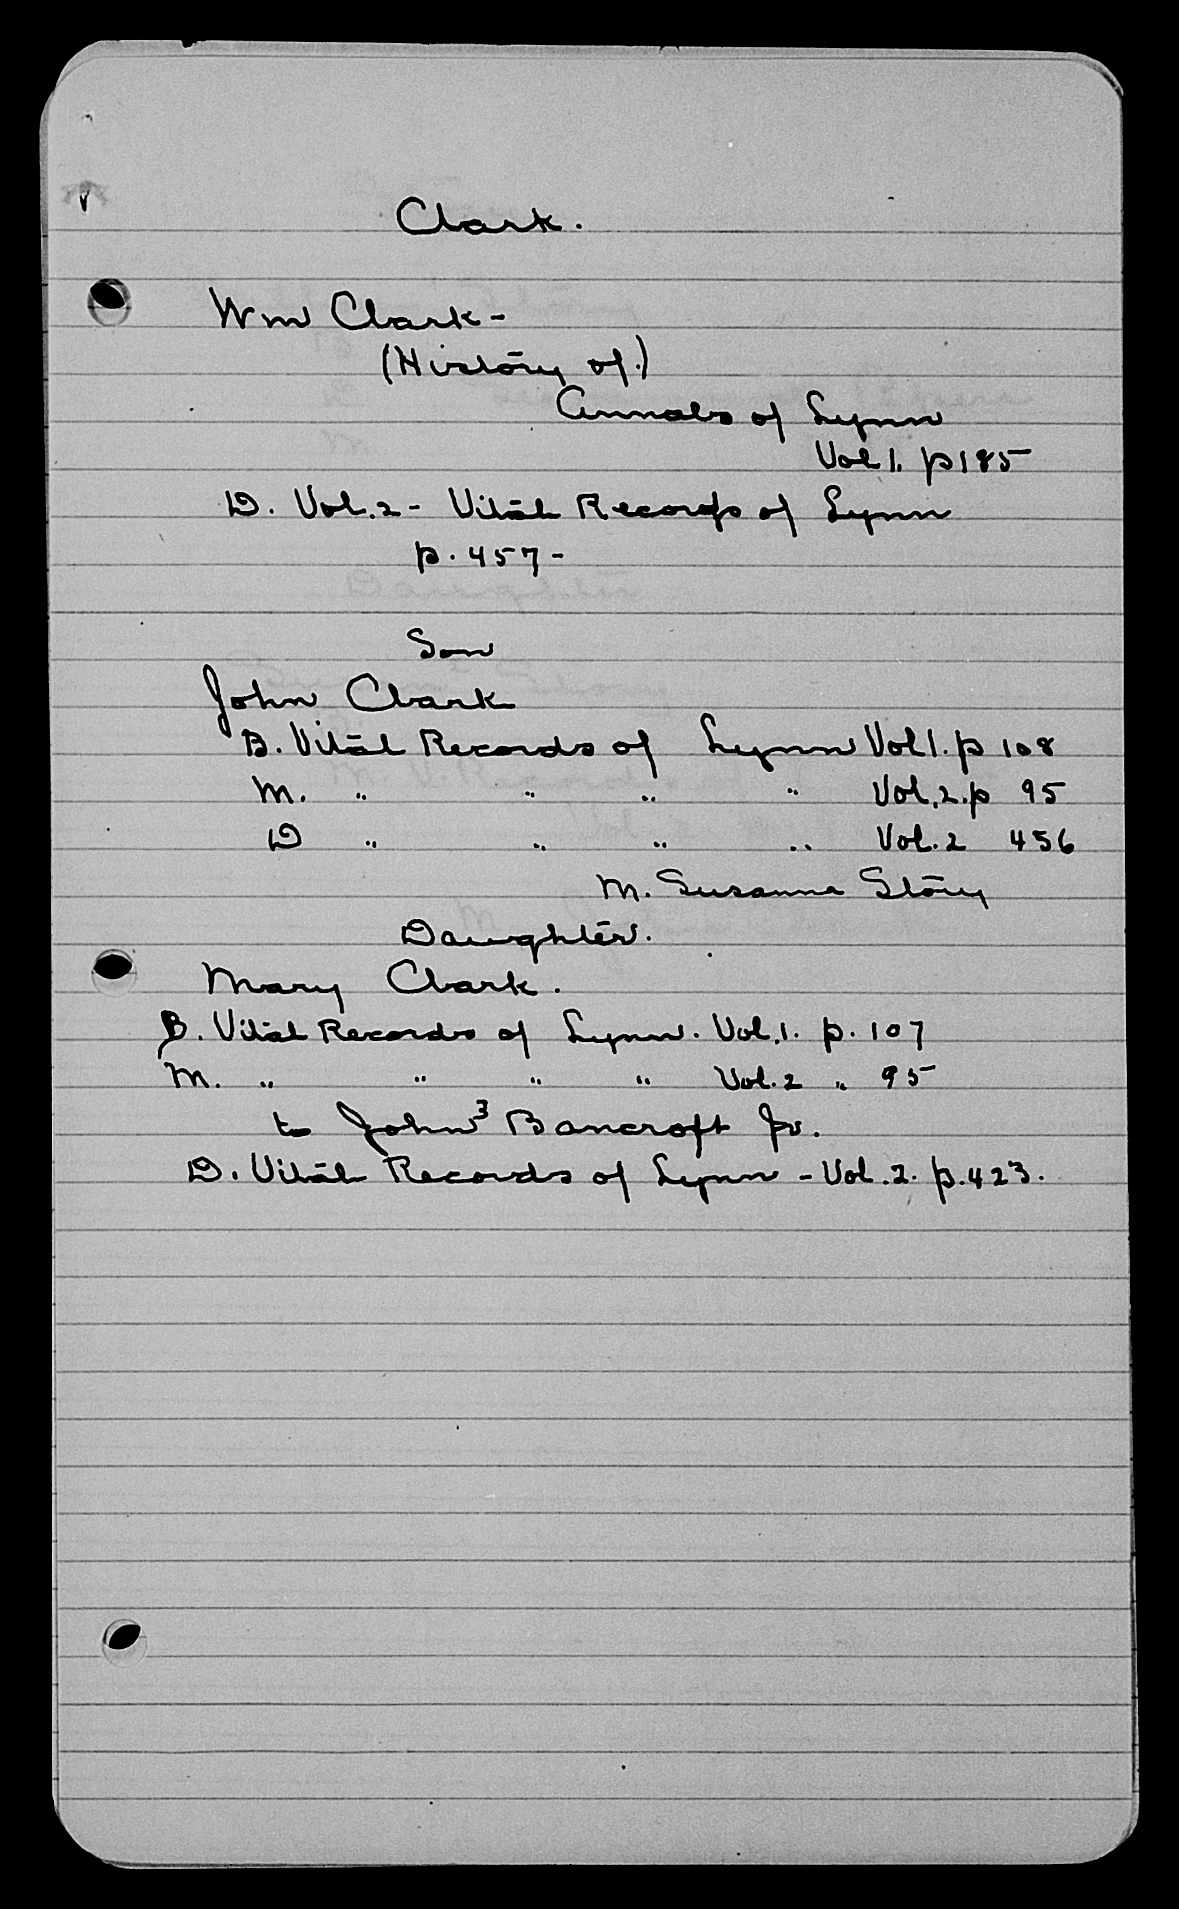 Clark.
Wm Clark-
(History of.)
Annals of Lynn
Vol 1. p 185
D. Vol. 2 - Vital Records of Lynn
p. 457 -
Son
John Clark
B. Vital Records of Lynn Vol 1. p 108
M. " " " " Vol. 2. p 95
D " " " " Vol. 2 456
M. Susanna Story
Daughter.
Mary Clark.
B. Vital Records of Lynn. Vol. 1. p. 107
M. " " " " Vol. 2 " 95
to John³ Bancroft Jr.
D. Vital Records of Lynn - Vol. 2. p. 423.